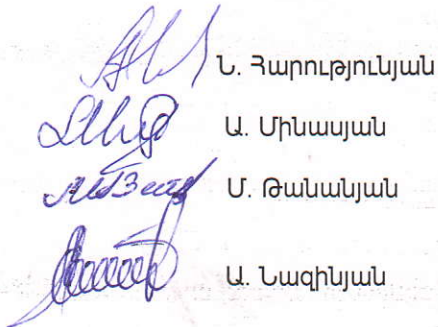 Ն. Հարությունյան
Ա. Մինասյան
Մ. Թանանյան
Ա. Նազինյան